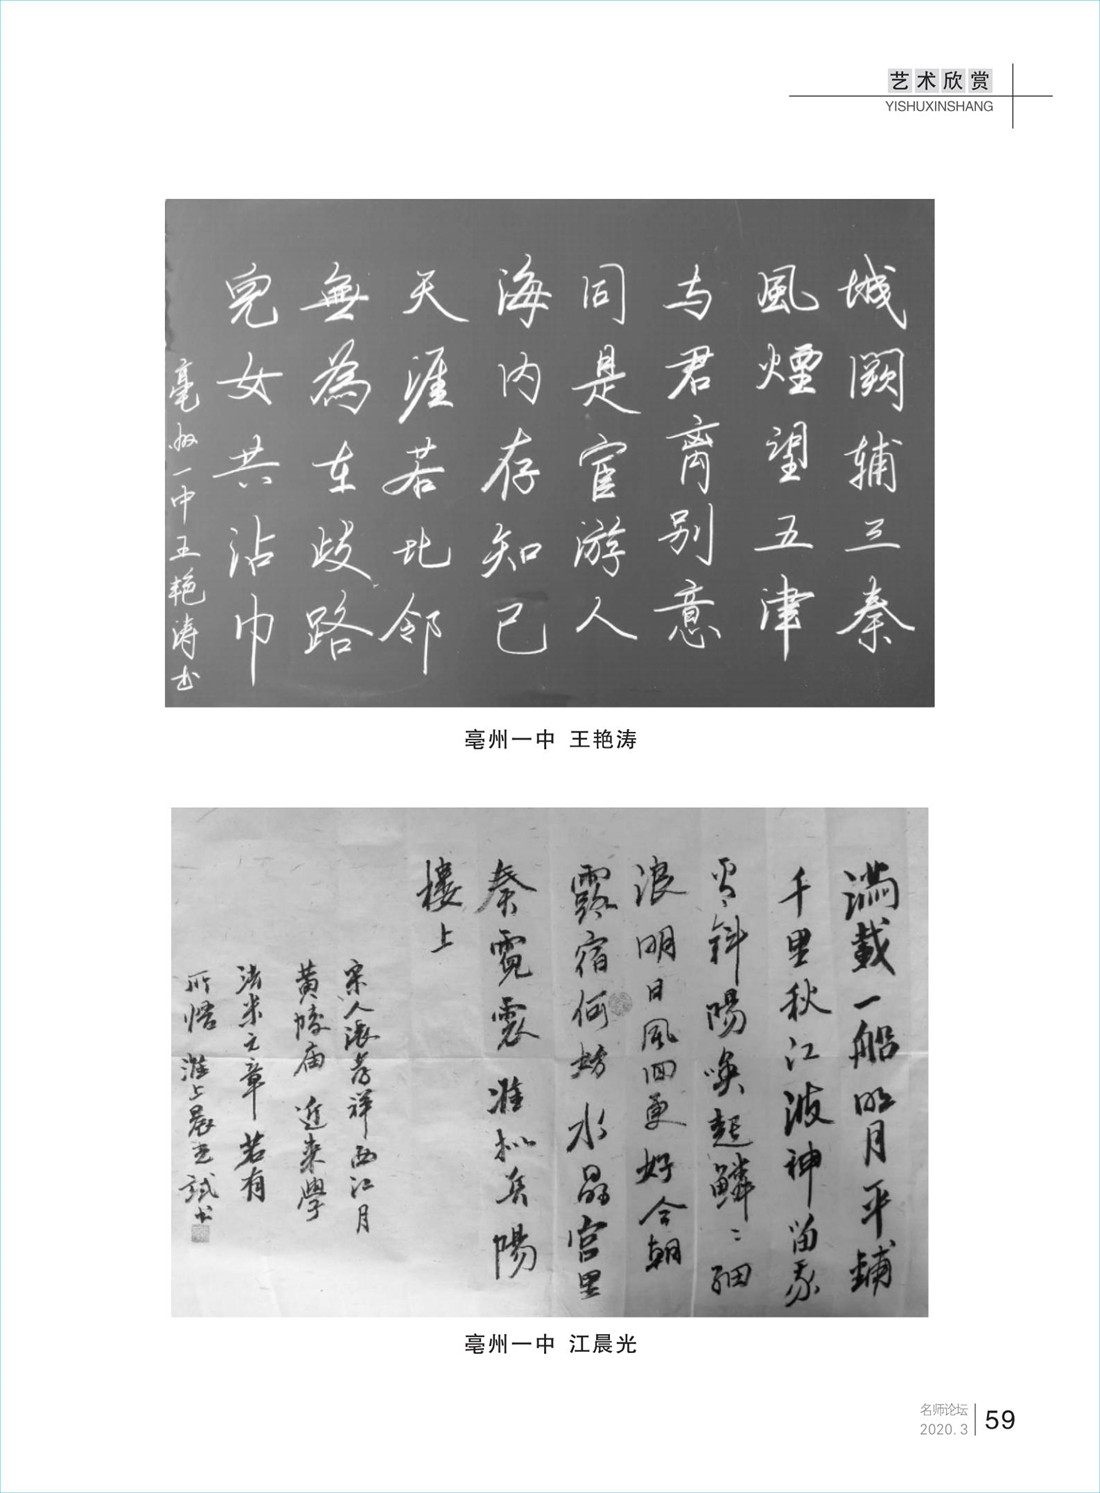 艺术欣赏
YISHUXINSHANG
城阙辅三秦
風煙望五津
与君离别意
同是宦游人
海内存知己
天涯若比邻
無為在歧路
兒女共沾巾
亳州一中王艳涛书
亳州一中 王艳涛
满载一船明月平鋪
千里秋江波神留我
看斜陽唤起鱗〻细
浪明日風回更好今朝
露宿何妨水晶宫里
奏霓裳准拟岳陽
樓上
宋人张孝祥西江月
黄陵庙 近来學
法米元章若有
所悟 淮上晨光試书
亳州一中 江晨光
名师论坛
2020.3
59